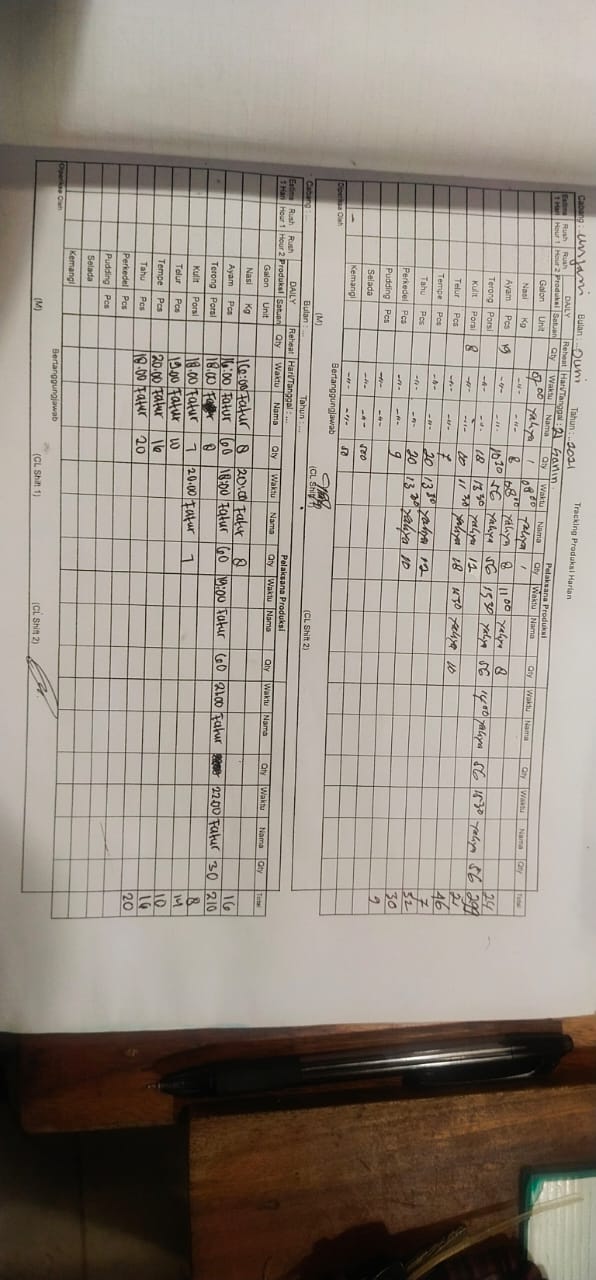 Tracking Produksi Harian
Cabang : Unjani Bulan : Juni Tahun : 2021
Estima Rush Rush DAILY Reheat Hari/Tanggal : 21 Senin Pelaksana Produksi
1 Hari Hour 1 Hour 2 Produksi Satuan Qty Waktu Nama Qty Waktu Nama Qty Waktu Nama Qty Waktu Nama Qty Waktu Nama Qty Total
Galon Unit 07.00 Yahya 1 08.00 Yahya 1
Nasi Kg -"- -"- 8 Yahya 8 11 00 Yahya 8 24
Ayam Pcs -"- -"- 56 Yahya 56 13 30 Yahya 56 14 00 Yahya 56 15 30 Yahya 56
Terong Porsi -"- -"- 18 13 30 Yahya 12
Kulit Porsi 8 -"- -"- 11 30 Yahya 18 Yahya 10 46
Telur Pcs -"- -"- 7 7
Tempe Pcs -"- -"- 20 13 30 Yahya 12 32
Tahu Pcs -"- -"- 20 13 30 Yahya 10 30
Perkedel Pcs -"- -"- 9 9
Pudding Pcs -"- -"-
Selada -"- -"- 500
Kemangi -"- -"- 50
Diperiksa Oleh Bertanggungjawab
(M) (CL Shift 1) (CL Shift 2)
Cabang : Bulan : ... Tahun : ...
Estima Rush Rush DAILY Reheat Hari/Tanggal : ... Pelaksana Produksi
1 Hari Hour 1 Hour 2 Produksi Satuan Qty Waktu Nama Qty Waktu Nama Qty Waktu Nama Qty Waktu Nama Qty Waktu Nama Qty Total
Galon Unit
Nasi Kg 16:00 Fatur 8 20:00 Fatur 8 16
Ayam Pcs 16.00 Fatur 60 18.00 Fatur 60 19.00 Fatur 60 21.00 Fatur 22.00 Fatur 30 210
Terong Porsi 18.00 Fatur 8 8
Kulit Porsi 18.00 Fatur 7 20.00 Fatur 7 14
Telur Pcs 19.00 Fatur 10 10
Tempe Pcs 20.00 Fatur 16 16
Tahu Pcs 18.00 Fatur 20 20
Perkedel Pcs
Pudding Pcs
Selada
Kemangi
Diperiksa Oleh Bertanggungjawab
(M) (CL Shift 1) (CL Shift 2)